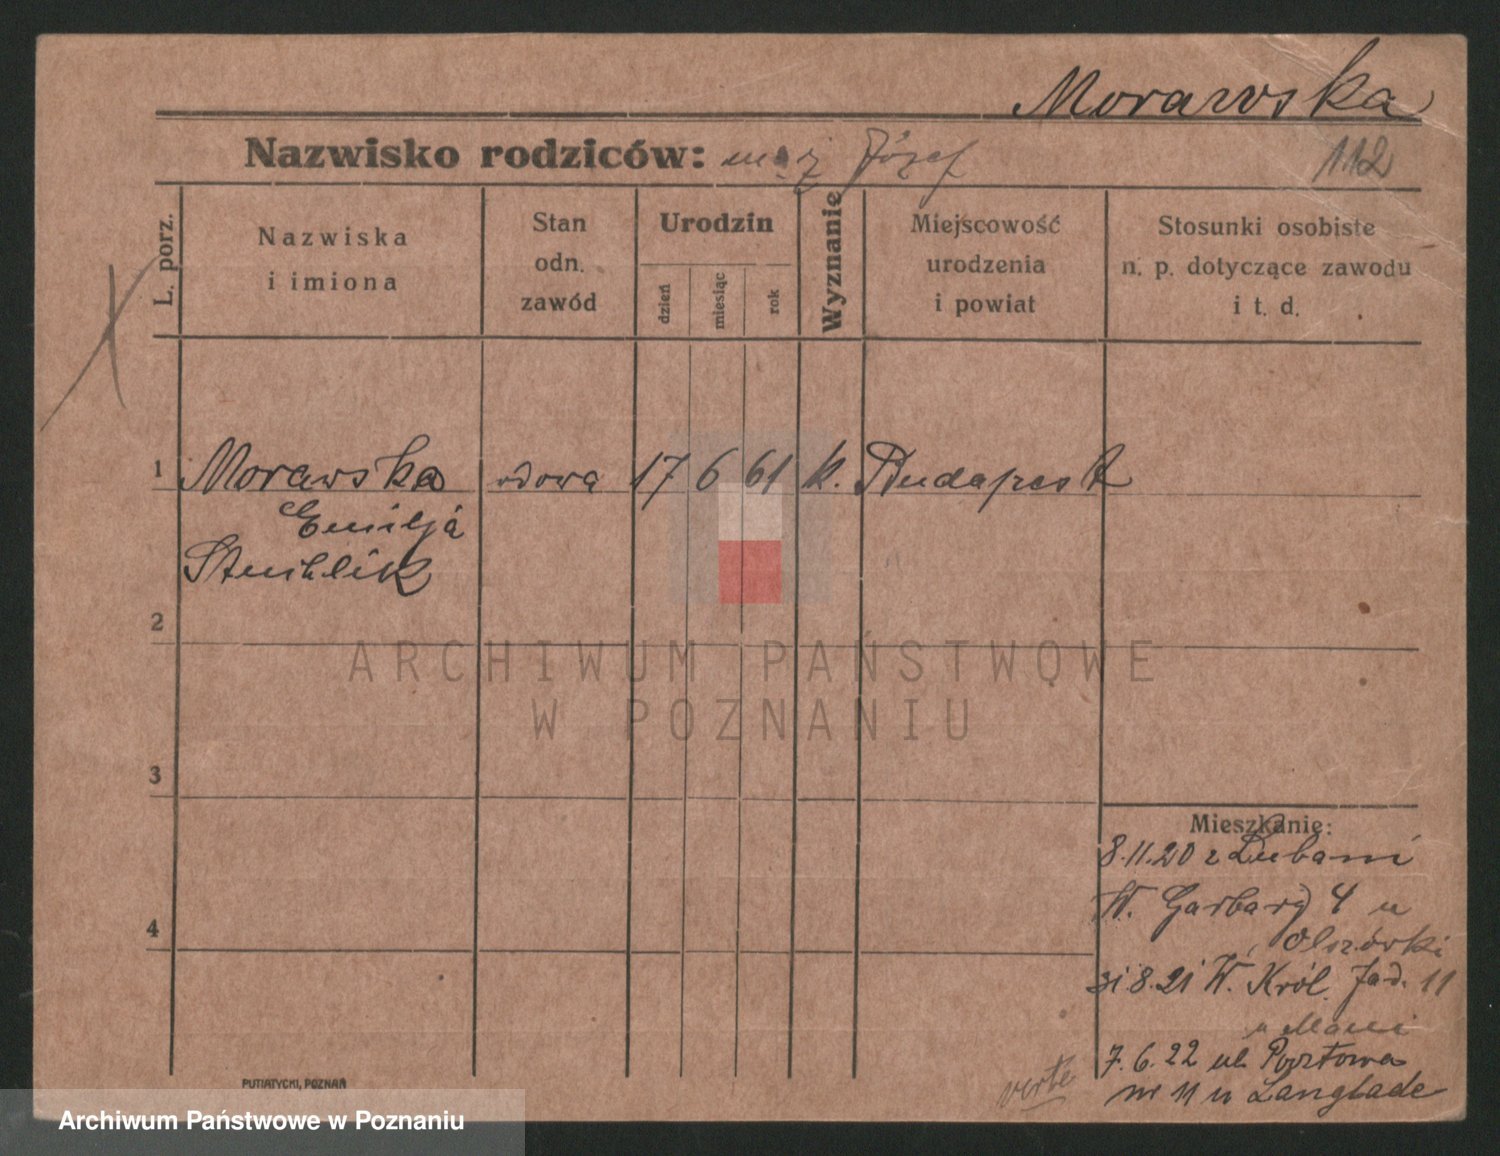 Morawska
Nazwisko rodziców: mąż Józef
112
L. porz.
Nazwiska
i imiona
Stan
odn.
zawód
Urodzin
dzień
miesiąc
rok
Wyznanie
Miejscowość
urodzenia
i powiat
Stosunki osobiste
n. p. dotyczące zawodu
i t. d.
1 Morawska wdowa 17 6 61 k. Budapest
Emilja
Stuchlik
2
ARCHIWUM PAŃSTWOWE
W POZNANIU
3
Mieszkanie:
8.11.20 z Lubani
W. Garbary 4 u
4
Olszówki
31.8.21 W. Król. Jad. 11
u
7.6.22 ul. Pocztowa
nr 11 u Langlade
verte
PUTIATYCKI, POZNAŃ
Archiwum Państwowe w Poznaniu